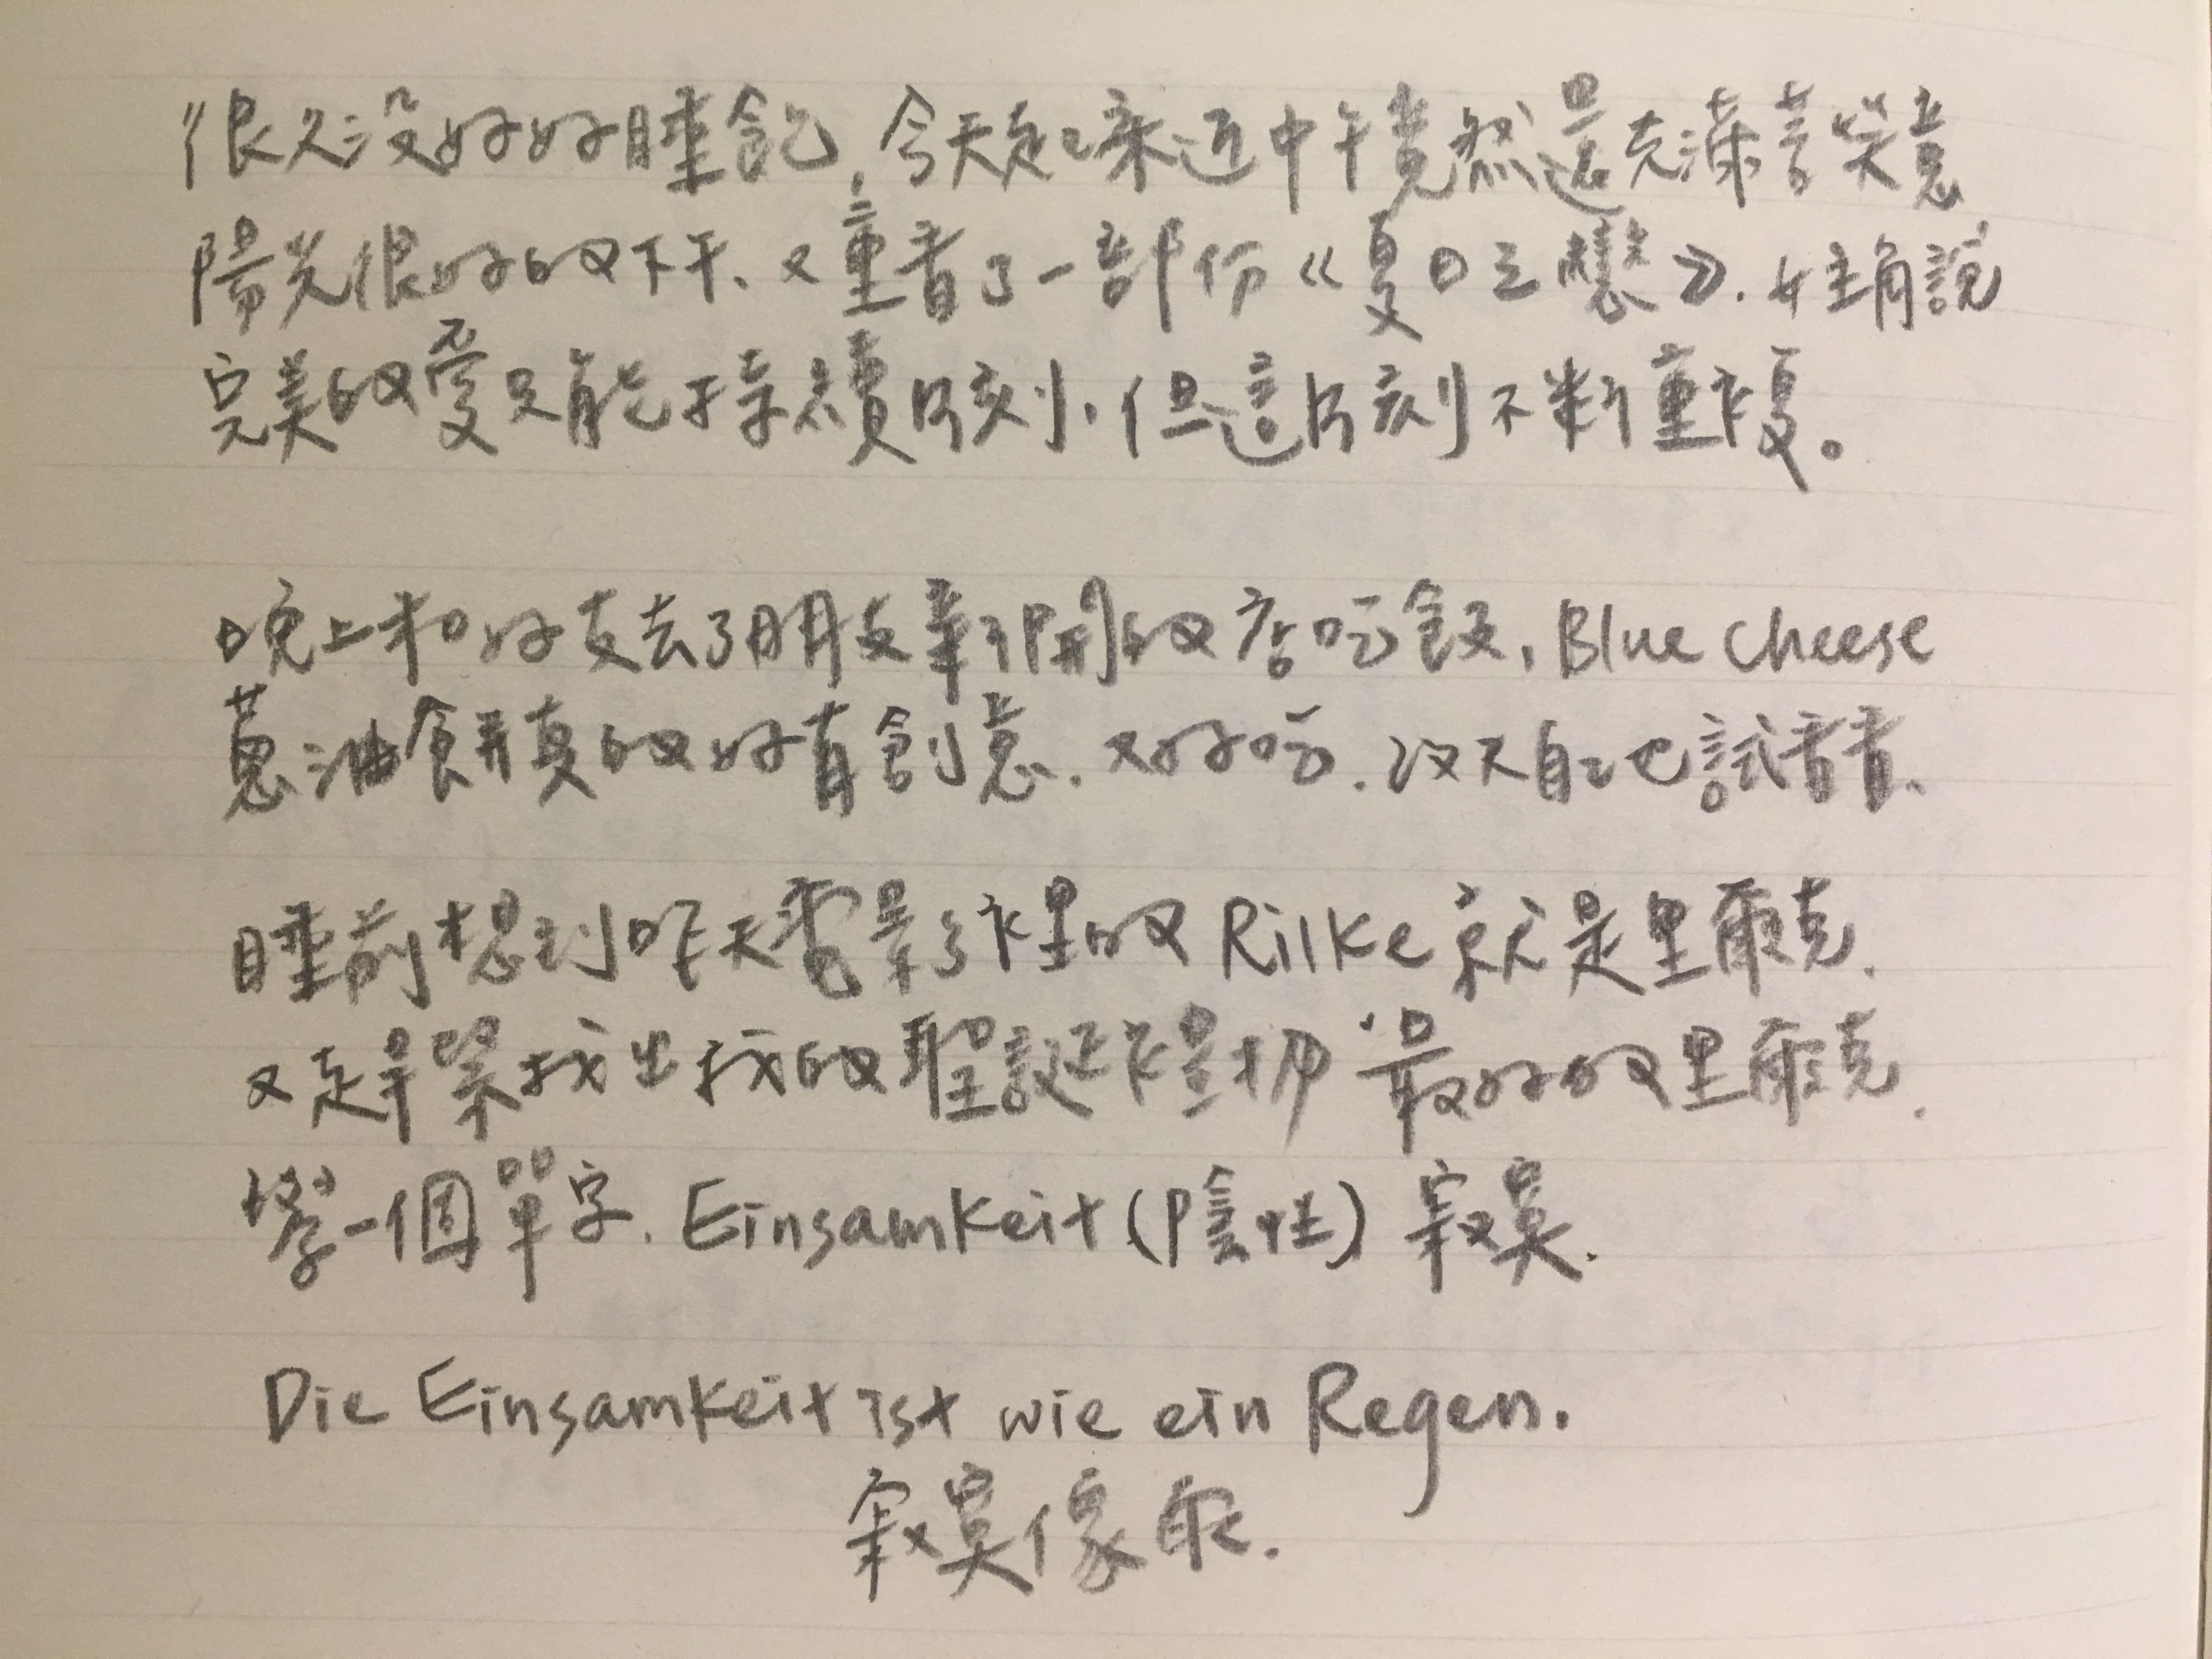 很久沒好好睡飽,今天起來近中午竟然還充滿著笑意,
陽光很好的下午、又重看了一部份《夏日之戀》. 女主角說
完美的愛只能持續片刻.但這片刻不斷重複。
晚上和好友去了朋友新開的店吃飯, Blue Cheese
蔥油餅真的好有創意. 又好吃. 改天自己也試看看.
睡前想到昨天電影裡的 Rilke 就是里爾克.
又趕緊找出我的聖誕禮物 "最好的里爾克.
學一個單字. Einsamkeit (陰性) 寂寞.
Die Einsamkeit ist wie ein Regen.
寂寞像雨.